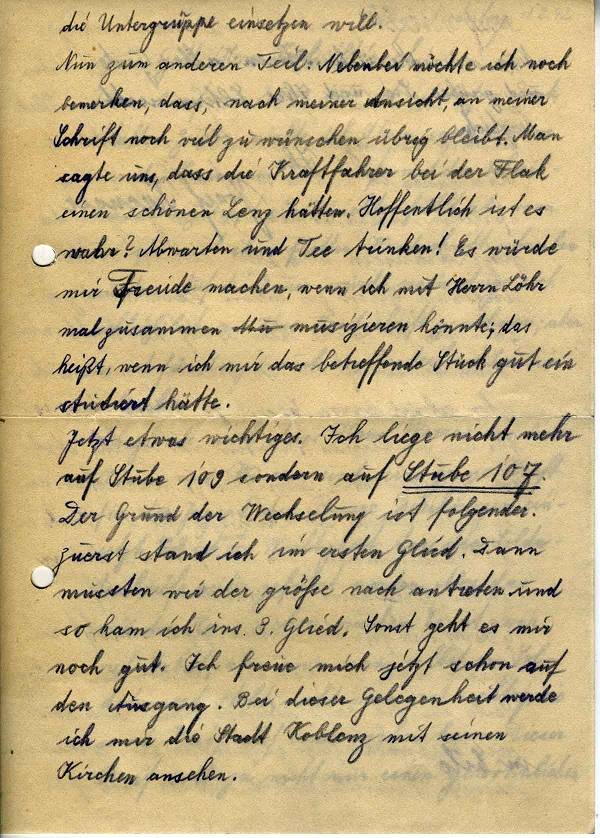 die Untergruppe einsetzen will.
Nun zum anderen Teil: Nebenbei möchte ich noch
bemerken, dass, nach meiner Ansicht, an meiner
Schrift noch veil zu wünschen übrig bleibt. Man
sagte uns, dass die Kraftfahrer bei der Flak
einen schönen Lenz hätten. Hoffentlich ist es
wahr? Abwarten und Tee trinken! Es würde
mir Freude machen, wenn ich mit Herrn Löhr
mal zusammen musizieren könnte; das
heißt, wenn ich mir das betreffende Stück gut ein
studiert hätte.
Jetzt etwas wichtiges. Ich liege nicht mehr
auf Stube 109 sondern auf Stube 107.
Der Grund der Wechselung ist folgender.
Zuerst stand ich im ersten Glied. Dann
mussten wir der größe nach antreten und
so kam ich ins 3. Glied. Sonst geht es mir
noch gut. Ich freue mich jetzt schon auf
den Ausgang. Bei dieser Gelegenheit werde
ich mir die Stadt Koblenz mit seinen
Kirchen ansehen.